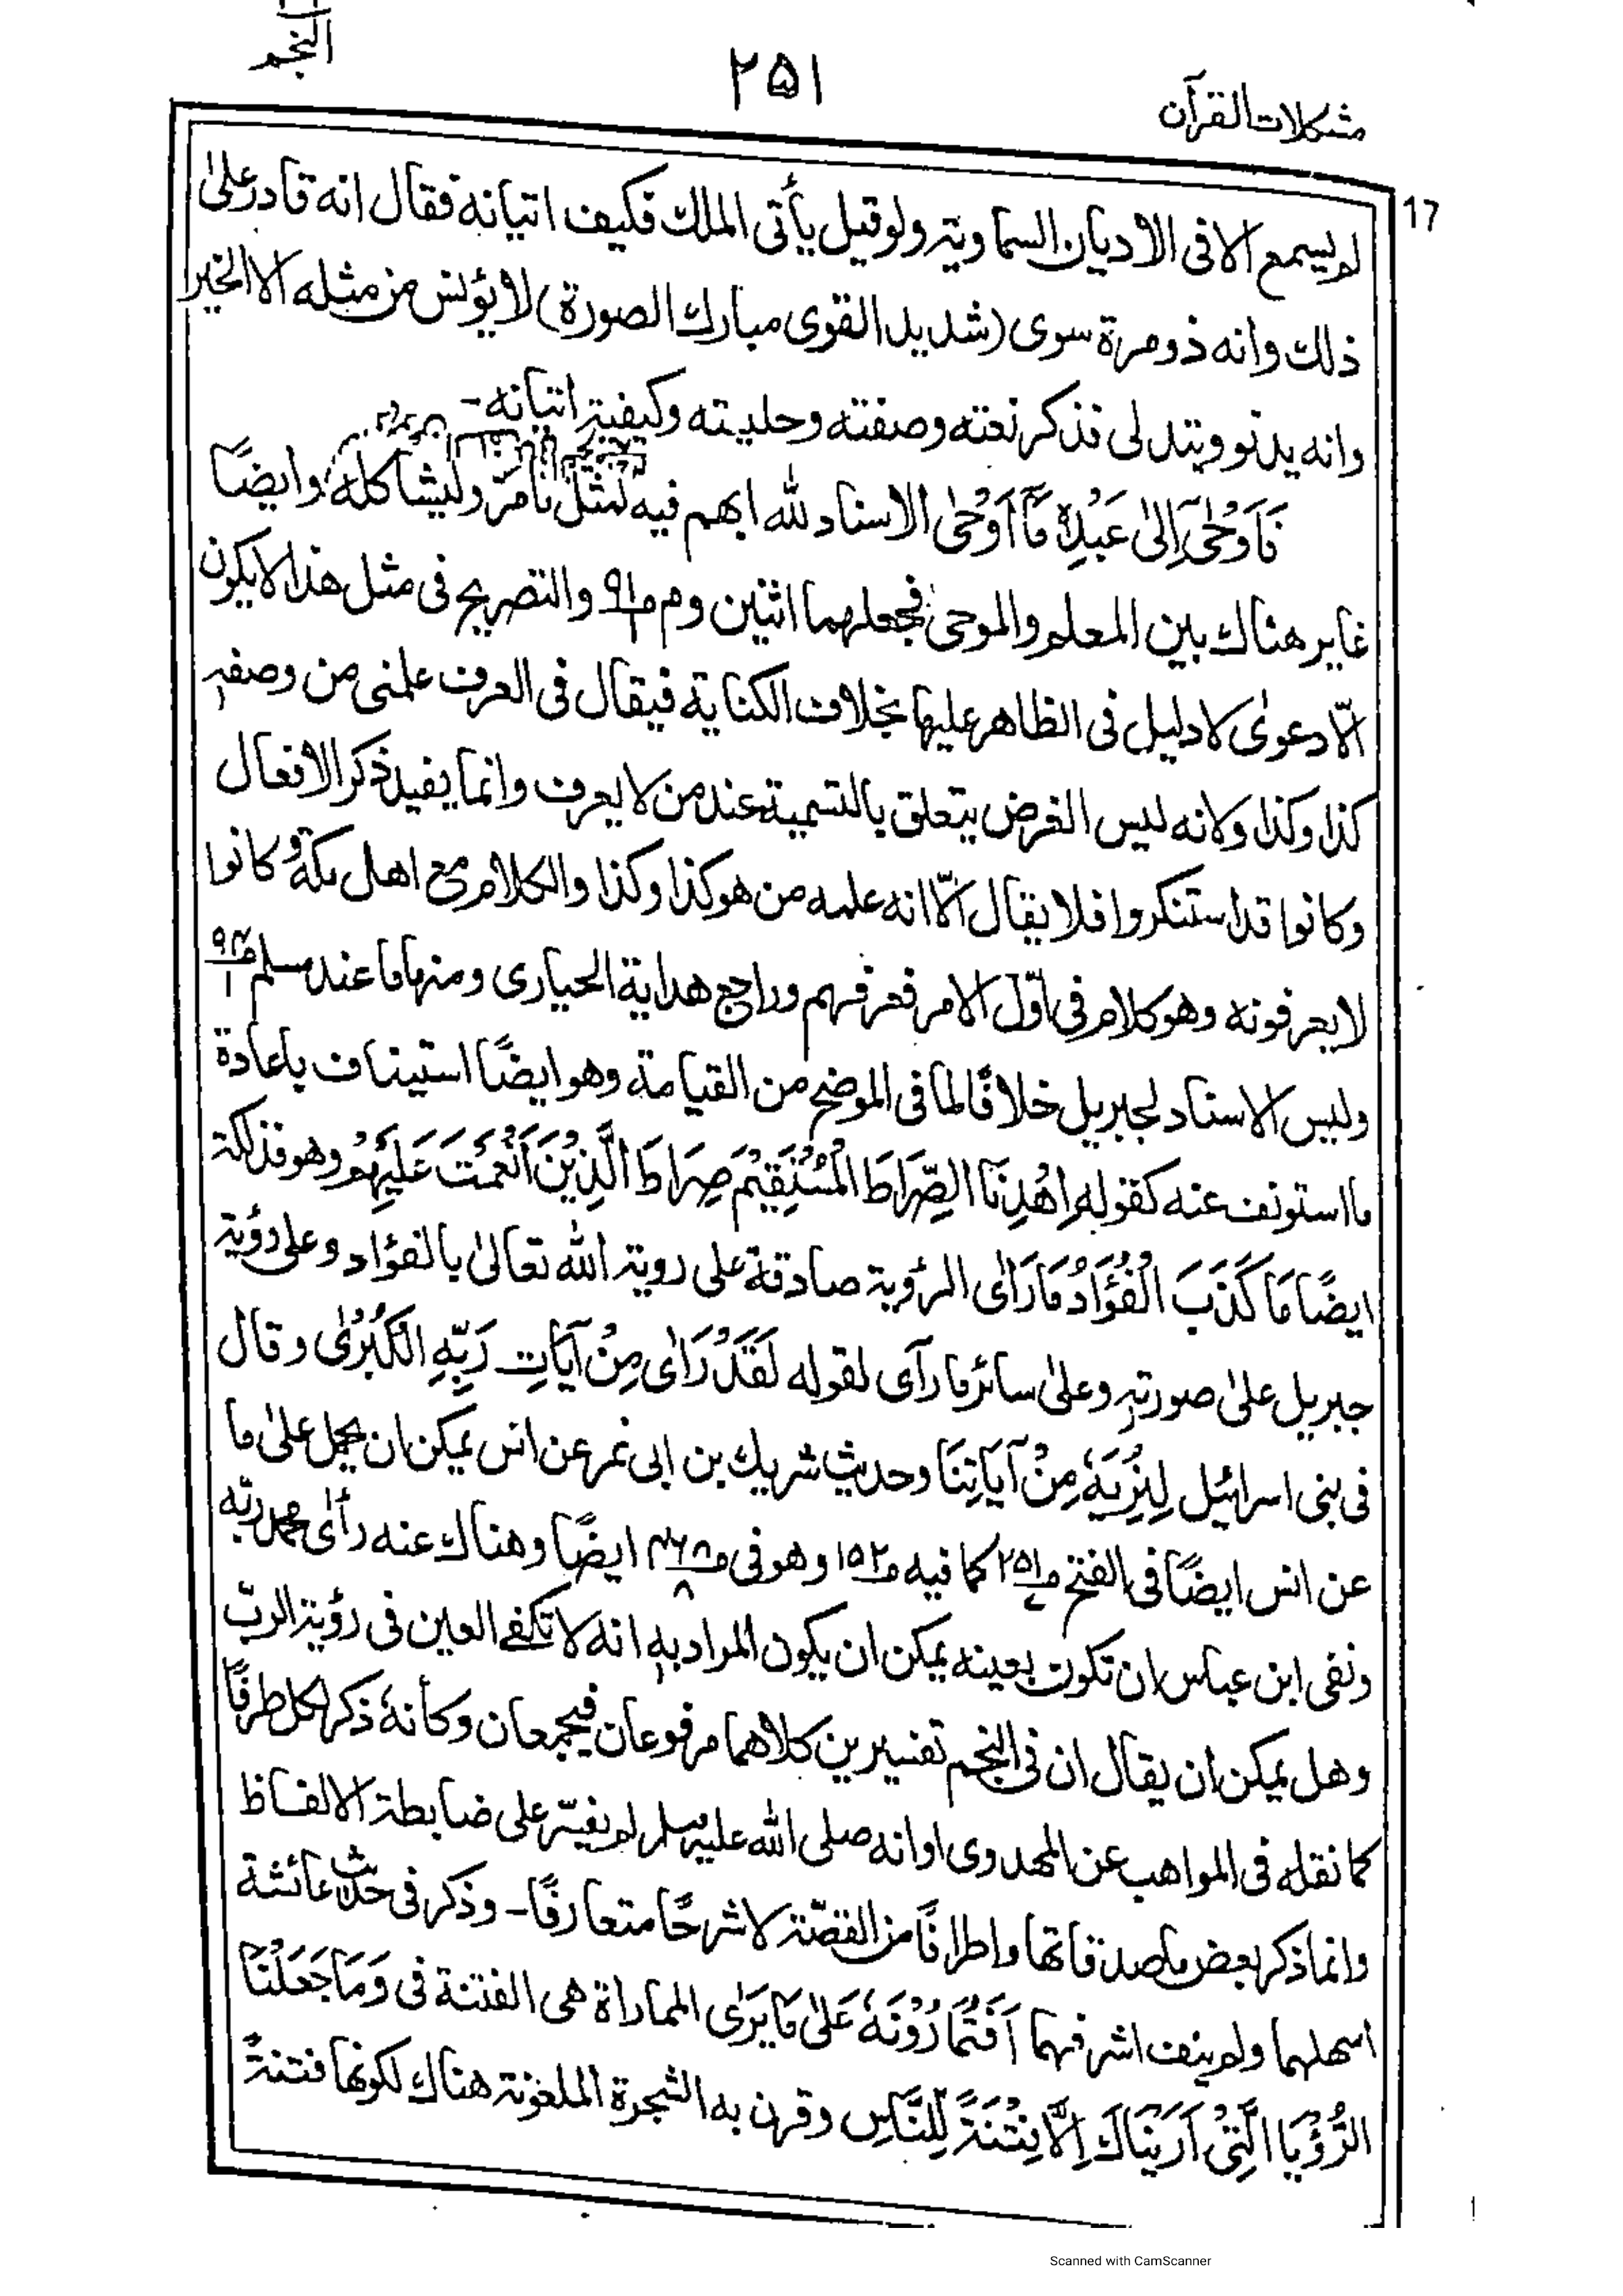 النجم
۲۵۱
مشكلات القرآن
17
لم يسمع الا فى الاديان السماوية ولو قيل يأتى الملك فكيف اتيانه فقال انه قادر على
ذلك وانه ذو مرة سوى (شديد القوى مبارك الصورة) لا يؤنس من مثله الا الخير
وانه يدنو ويتدلى فذكر نعته وصفته وحليته وكيفية اتيانه -
فَأَوْحٰى إِلىٰ عَبْدِهٖ مَآ أَوْحٰى الاسناد لله ابهم فيه لمثل ما مرّ وليشاكله وايضًا
غاير هناك بين المعلم والموحى فجعلهما اثنين وم م ٩١/١ والتصريح فى مثل هذا لا يكون
الّا دعوى لا دليل فى الظاهر عليها بخلاف الكناية فيقال فى العرف علمنى من وصفه
كذا وكذا ولانه ليس الغرض يتعلق بالتسمية عند من لا يعرف وانما يفيد ذكر الافعال
وكانوا قد استنكروا فلا يقال الّا انه علمه من هو كذا وكذا والكلام مع اهل مكة وكانوا
لا يعرفونه وهو كلام فى اوّل الامر فعرفهم وراجع هداية الحيارى ومنها ما عند مسلم
وليس الاسناد لجبريل خلافًا لما فى الموضح من القيامة وهو ايضًا استيناف باعادة
ما استونف عنه كقوله اِهْدِنَا الصِّرَاطَ الْمُسْتَقِيْمَ صِرَاطَ الَّذِيْنَ اَنْعَمْتَ عَلَيْهِمْ وهو فذلكة
ايضًا مَا كَذَبَ الْفُؤَادُ مَا رَاٰى الرؤية صادقة على روية الله تعالىٰ بالفؤاد وعلى رؤية
جبريل علىٰ صورته وعلىٰ سائر ما رآى لقوله لَقَدْ رَاٰى مِنْ آيَاتِ رَبِّهِ الْكُبْرٰى وقال
فى بنى اسرائيل لِنُرِيَهٗ مِنْ آيَاتِنَا وحديث شريك بن ابى نمر عن انس يمكن ان يحمل علىٰ ما
عن انس ايضًا فى الفتح م ۲۵۱ كما فيه م ۱۵۲ وهو فى م ايضًا وهناك عنه رأى محمد ربّه
ونفى ابن عباس ان تكون بعينه يمكن ان يكون المراد به انه لا تكفے العين فى رؤية الربّ
وهل يمكن ان يقال ان فى النجم تفسيرين كلاهما مرفوعان فيجمعان وكأنهٗ ذكر لكل طرفًا
كما نقله فى المواهب عن المهدوى او انه صلى الله عليه وسلم لم يفسّر على ضابطة الالفاظ
وانما ذكر بعض ما صدقاتها واطرافًا من القصّة لا شرحًا متعارفًا - وذكر فى حديث عائشة
اسهلهما ولم ينف اشرفهما اَفَتُمَارُوْنَهٗ عَلىٰ مَا يَرٰى المماراة هى الفتنة فى وَمَا جَعَلْنَا
الرُّؤْيَا الَّتِىْ اَرَيْنَاكَ اِلَّا فِتْنَةً لِّلنَّاسِ وقرن به الشجرة الملعونة هناك لكونها فتنةً
Scanned with CamScanner